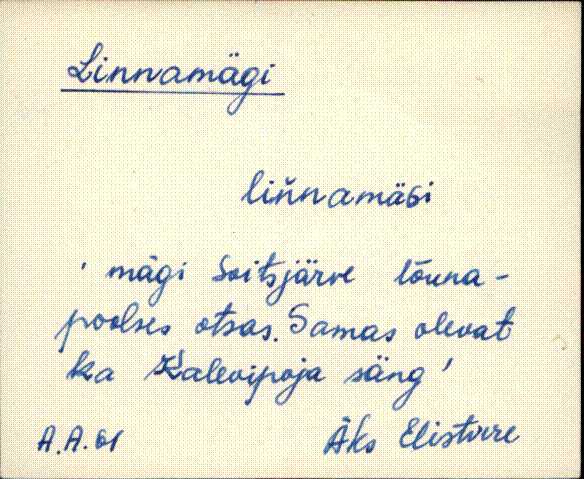 Linnamägi
liňnamäGi
' mägi Soitsjärve lõuna-
poolses otsas. Samas olevat
ka Kalevipoja säng '
A.A. 61 Äks Elistvere